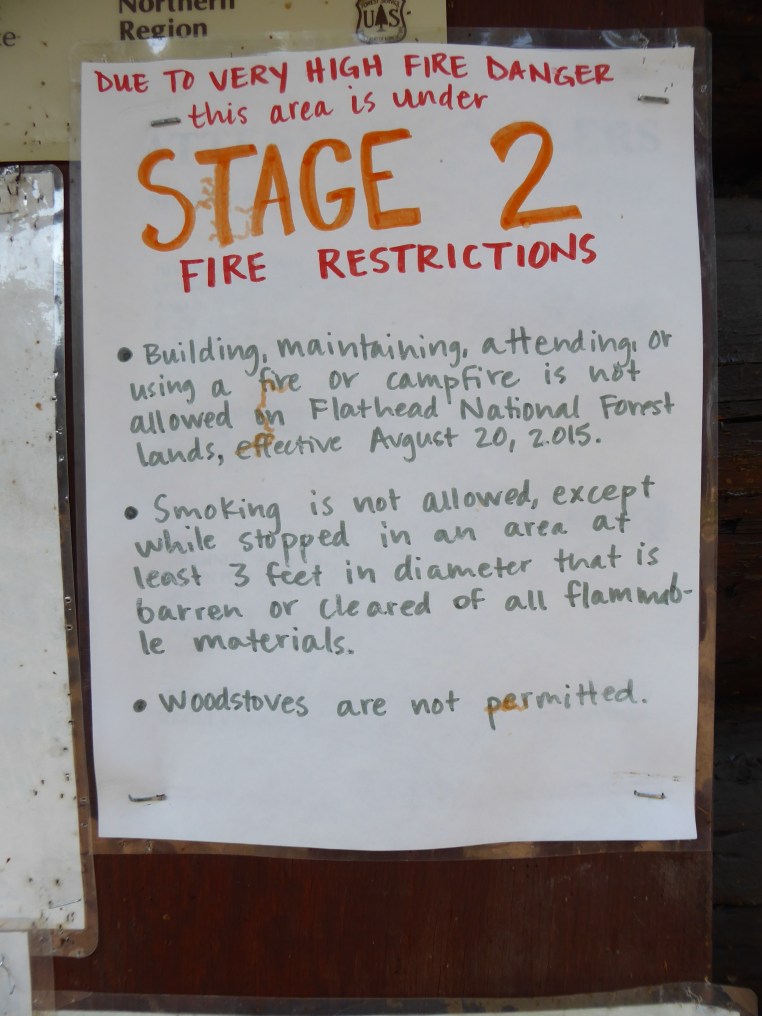 Northern
Region
FOREST SERVICE
U S
DUE TO VERY HIGH FIRE DANGER
this area is under
STAGE 2
FIRE RESTRICTIONS
• Building, maintaining, attending, or
using a fire or campfire is not
allowed on Flathead National Forest
lands, effective August 20, 2015.
• Smoking is not allowed, except
while stopped in an area at
least 3 feet in diameter that is
barren or cleared of all flammab-
le materials.
• Woodstoves are not permitted.